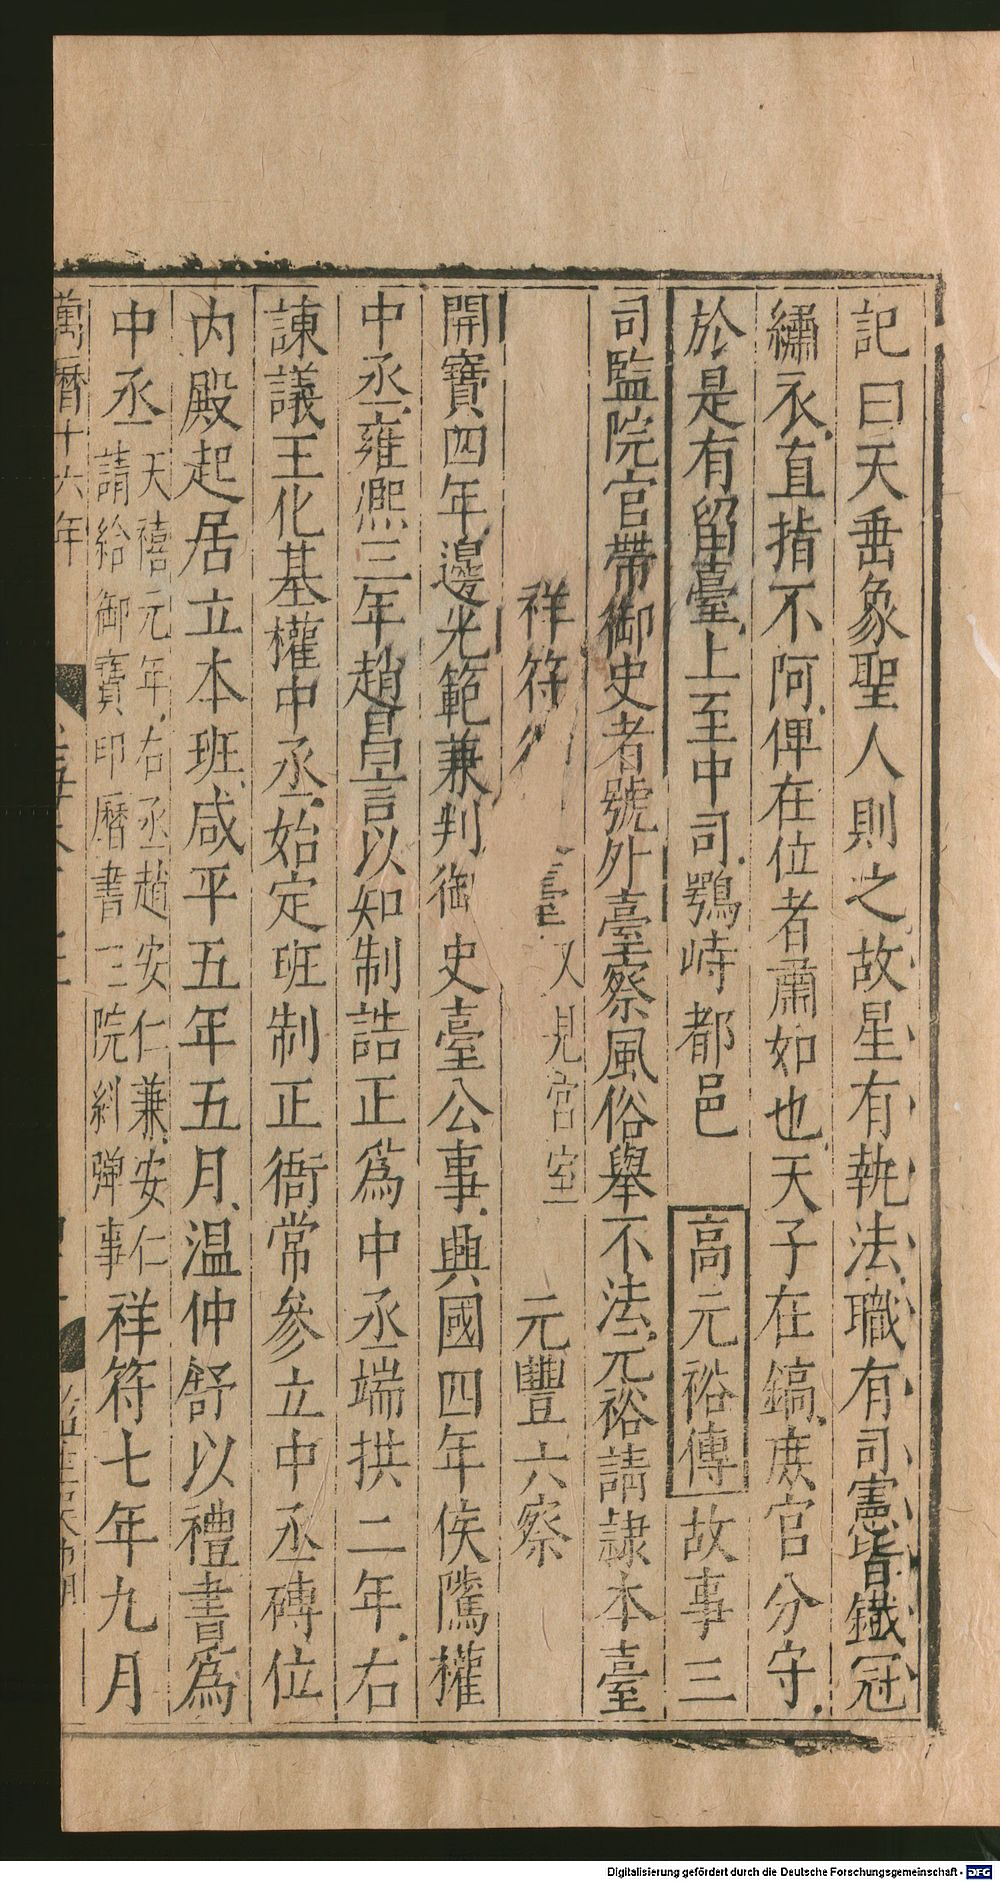 記曰天垂象聖人則之故星有執法職有司憲皆鐵冠
繡衣直指不阿俾在位者肅如也天子在鎬庻官分守
於是有留臺上至中司鶚峙都邑 高元裕傳 故事三
司監院官帶御史者號外臺察風俗舉不法元裕請隷本臺
祥符 臺 又見宫室 元豐六察
開寶四年邊光範兼判御史臺公事興國四年侯隲權
中丞雍熙三年趙昌言以知制誥正爲中丞端拱二年右
諫議王化基權中丞始定班制正衙常參立中丞磚位
内殿起居立本班咸平五年五月温仲舒以禮書爲
中丞 天禧元年右丞趙安仁兼安仁
請給御寳印曆書三院糾彈事 祥符七年九月
萬曆十六年
Digitalisierung gefördert durch die Deutsche Forschungsgemeinschaft - DFG